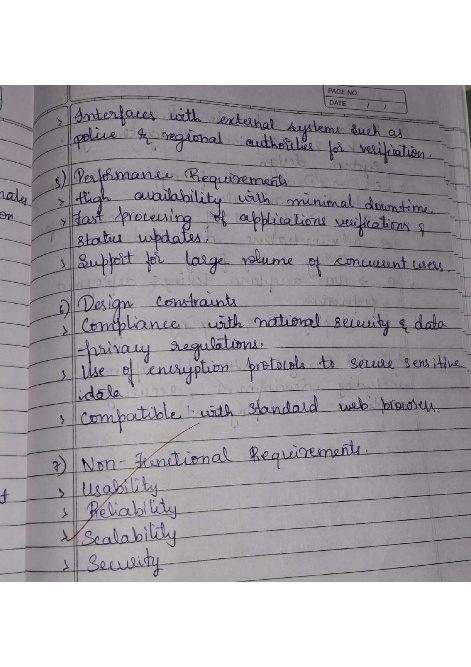 PAGE NO.
DATE / /
> Interfaces with external systems such as
police & regional authorities for verification.
5) Performance Requirements
> High availability with minimal downtime
> Fast processing of applications verifications &
status updates.
> Support for large volume of concurrent users
6) Design constraints
> Compliance with national security & data
-privacy regulations.
> Use of encryption protocols to secure sensitive
data
> Compatible with standard web browsers.
7) Non-Functional Requirements.
> Usability
> Reliability
> Scalability
> Security